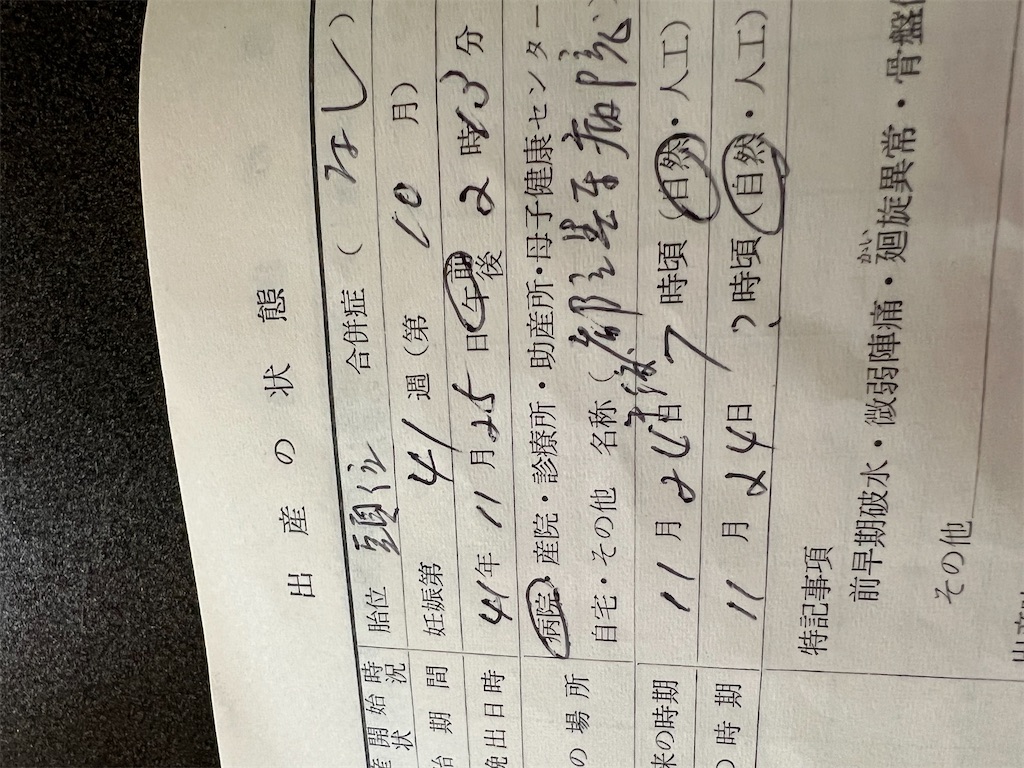 出産の状態
開始時 状況 胎位 頭位 合併症（なし）
期間 妊娠第 41 週（第 10 月）
娩出日時 41年 11月 25日 午前後 2時 43分
の場所 病院・産院・診療所・助産所・母子健康センター
自宅・その他 名称（都立 病院）
来の時期 11月 24日 午後 7時頃（自然・人工）
の時期 11月 24日 ？時頃（自然・人工）
特記事項
前早期破水・微弱陣痛・廻旋異常・骨盤
かい
その他